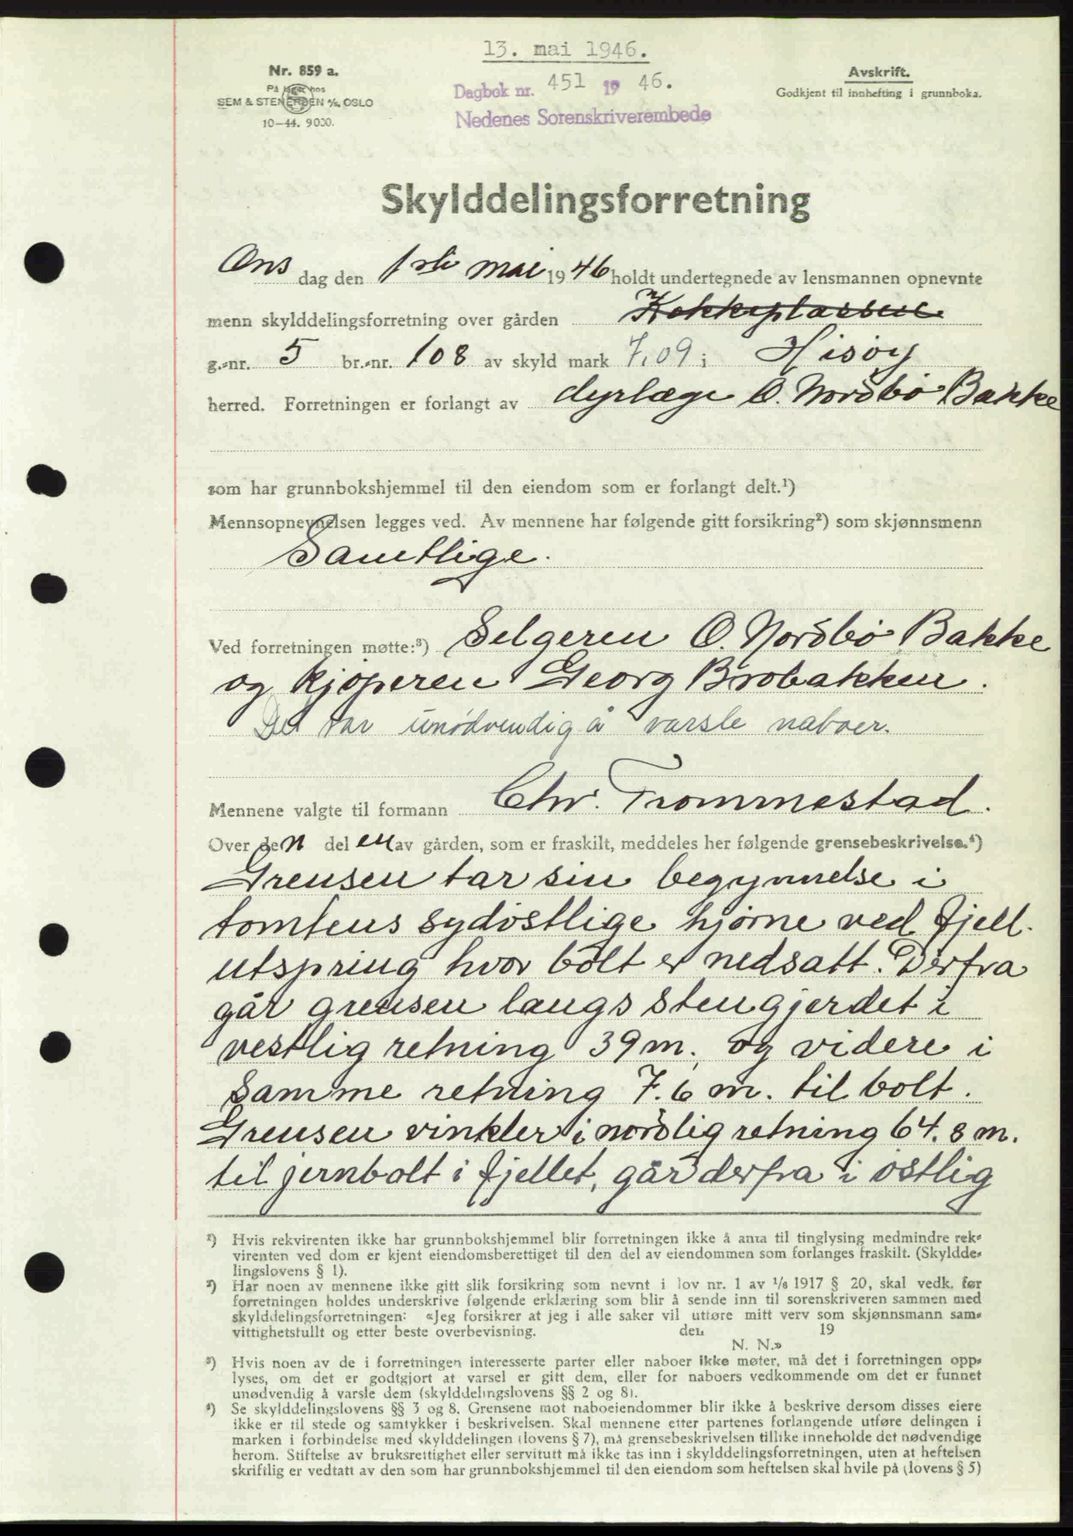 13. mai 1946.
Nr. 859 a.
På lager hos
SEM & STENERSEN A/S, OSLO
10-44. 9000.
Dagbok nr. 451 1946.
Nedenes Sorenskriverembede
Avskrift.
Godkjent til innhefting i grunnboka.
Skylddelingsforretning
Ons dag den 1ste mai 1946 holdt undertegnede av lensmannen opnevnte
menn skylddelingsforretning over gården Kokkeplassen
g.-nr. 5 br.-nr. 108 av skyld mark 7,09 i Hisøy
herred. Forretningen er forlangt av dyrlæge O. Nordbö Bakke
som har grunnbokshjemmel til den eiendom som er forlangt delt.¹)
Mennsopnevnelsen legges ved. Av mennene har følgende gitt forsikring²) som skjønnsmenn
Samtlige.
Ved forretningen møtte:³) Selgeren O. Nordbö Bakke
og kjöperen Georg Brobakken.
Det var unödvendig å varsle naboer.
Mennene valgte til formann Chr. Trommestad.
Over den del en av gården, som er fraskilt, meddeles her følgende grensebeskrivelse.⁴)
Grensen tar sin begynnelse i
tomtens sydöstlige hjörne ved fjell-
utspring hvor bolt er nedsatt. Derfra
går grensen langs stengjerdet i
vestlig retning 39 m. og videre i
samme retning 7.6 m. til bolt.
Grensen vinkler i nordlig retning 64.8 m.
til jernbolt i fjellet, går derfra i östlig
¹) Hvis rekvirenten ikke har grunnbokshjemmel blir forretningen ikke å anta til tinglysing medmindre rek-
virenten ved dom er kjent eiendomsberettiget til den del av eiendommen som forlanges fraskilt. (Skyldde-
lingslovens § 1).
²) Har noen av mennene ikke gitt slik forsikring som nevnt i lov nr. 1 av 1/6 1917 § 20, skal vedk. før
forretningen holdes underskrive følgende erklæring som blir å sende inn til sorenskriveren sammen med
skylddelingsforretningen: «Jeg forsikrer at jeg i alle saker vil utføre mitt verv som skjønnsmann sam-
vittighetsfullt og etter beste overbevisning. den 19
N. N.»
³) Hvis noen av de i forretningen interesserte parter eller naboer ikke møter, må det i forretningen opp-
lyses, om det er godtgjort at varsel er gitt dem, eller for naboers vedkommende om det er funnet
unødvendig å varsle dem (skylddelingslovens §§ 2 og 8).
⁴) Se skylddelingslovens §§ 3 og 8. Grensene mot naboeiendommer blir ikke å beskrive dersom disses eiere
ikke er til stede og samtykker i beskrivelsen. Skal mennene etter partenes forlangende utføre delingen i
marken i forbindelse med skylddelingen (lovens § 7), må grensebeskrivelsen tillike inneholde det nødvendige
herom. Stiftelse av bruksrettighet eller servitutt må ikke tas inn i skylddelingsforretningen, uten at heftelsen
skriftlig er vedtatt av den som har grunnbokshjemmel til den eiendom som heftelsen skal hvile på (lovens § 5)